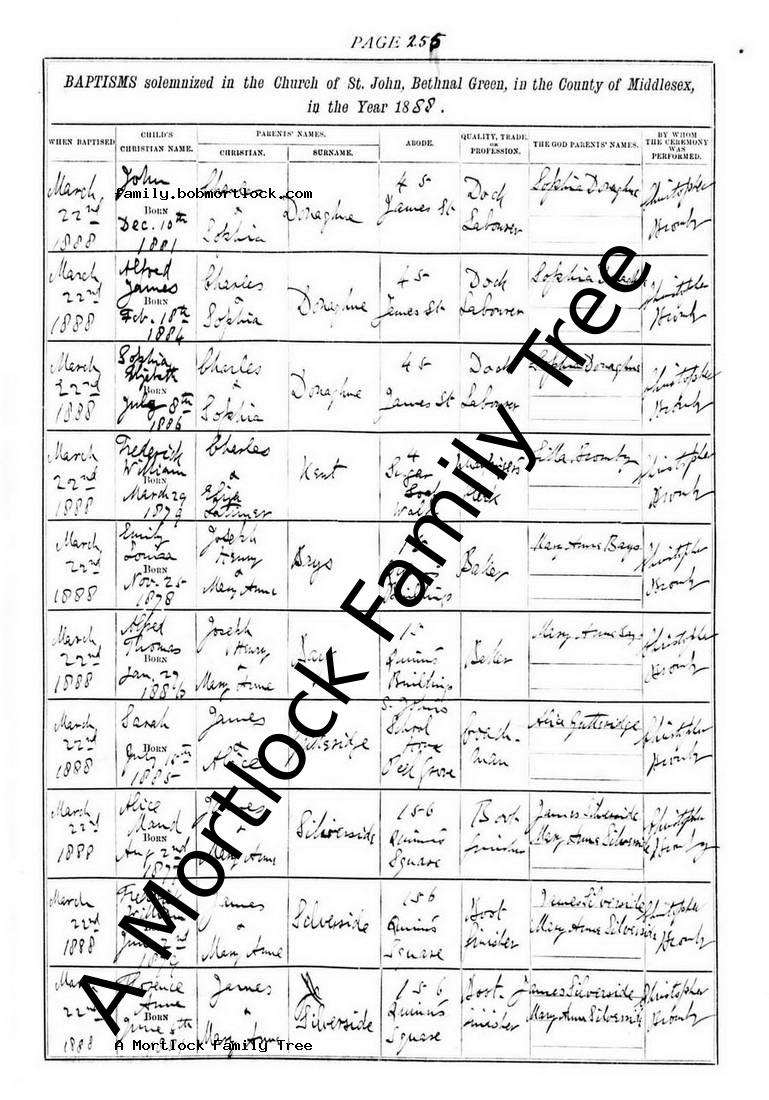 PAGE 255
BAPTISMS solemnized in the Church of St. John, Bethnal Green, in the County of Middlesex,
in the Year 1888.
WHEN BAPTISED
CHILD'S
CHRISTIAN NAME.
PARENTS' NAMES.
CHRISTIAN.
SURNAME.
ABODE.
QUALITY, TRADE
OR
PROFESSION.
THE GOD PARENTS' NAMES.
BY WHOM
THE CEREMONY
WAS
PERFORMED.
March
22nd
1888
John
BORN
Dec. 10th
1881
Charles
&
Sophia
Donaghue
45
James St
Dock
Labourer
Sophia Donaghue
Christopher
family.bobmortlock.com
March
22nd
1888
Alfred
James
BORN
Feb. 18th
1884
Charles
&
Sophia
Donaghue
45
James St
Dock
Labourer
Sophia
Christopher
March
22nd
1888
Sophia
Elizabeth
BORN
July 8th
1886
Charles
&
Sophia
Donaghue
45
James St
Dock
Labourer
Sophia Donaghue
Christopher
March
22nd
1888
Frederick
William
BORN
March 29
1879
Charles
&
Eliza
Kent
4
Sugar
Loaf
Walk
Christopher
March
22nd
1888
Emily
Louisa
BORN
Nov. 25
1878
Joseph
Henry
&
Mary Anne
Bays
15
Buildings
Baker
Mary Anne Bays
Christopher
March
22nd
1888
Alfred
Thomas
BORN
Jan. 29
Joseph
Henry
&
Mary Anne
15
Quinns
Buildings
Baker
Mary Anne Bays
Christopher
March
22nd
1888
Sarah
BORN
July
1885
James
&
Alice
Gutteridge
St Johns
School
Peel Grove
Coach-
man
Alice Gutteridge
Christopher
March
22nd
1888
Alice
Maud
BORN
Aug 2nd
James
&
Mary Anne
Silverside
156
Quinns
Square
Boot
finisher
James Silverside
Mary Anne Silverside
Christopher
March
22nd
1888
William
James
&
Mary Anne
Silverside
156
Quinns
Square
Boot
finisher
James Silverside
Mary Anne Silverside
Christopher
March
22nd
1888
Florence
Anne
BORN
June
James
&
Mary Anne
Silverside
156
Quinns
Square
Boot
finisher
James Silverside
Mary Anne Silverside
Christopher
A Mortlock Family Tree
A Mortlock Family Tree